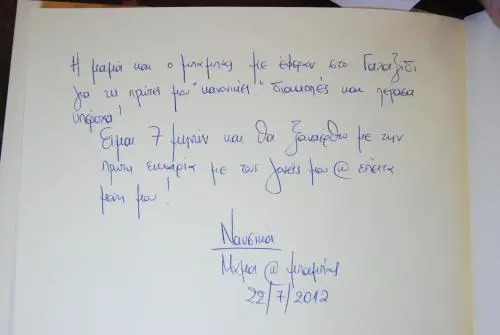 Η μαμά και ο μπαμπάς με έφεραν στο Γαλαξίδι
για τις πρώτες μου "κανονικές" διακοπές και πέρασα
υπέροχα!
Είμαι 7 μηνών και θα ξαναέρθω με την
πρώτη ευκαιρία με τους γονείς μου @ έπειτα
μόνη μου!
Ναυσικά
Μαμά @ μπαμπάς
22/7/2012